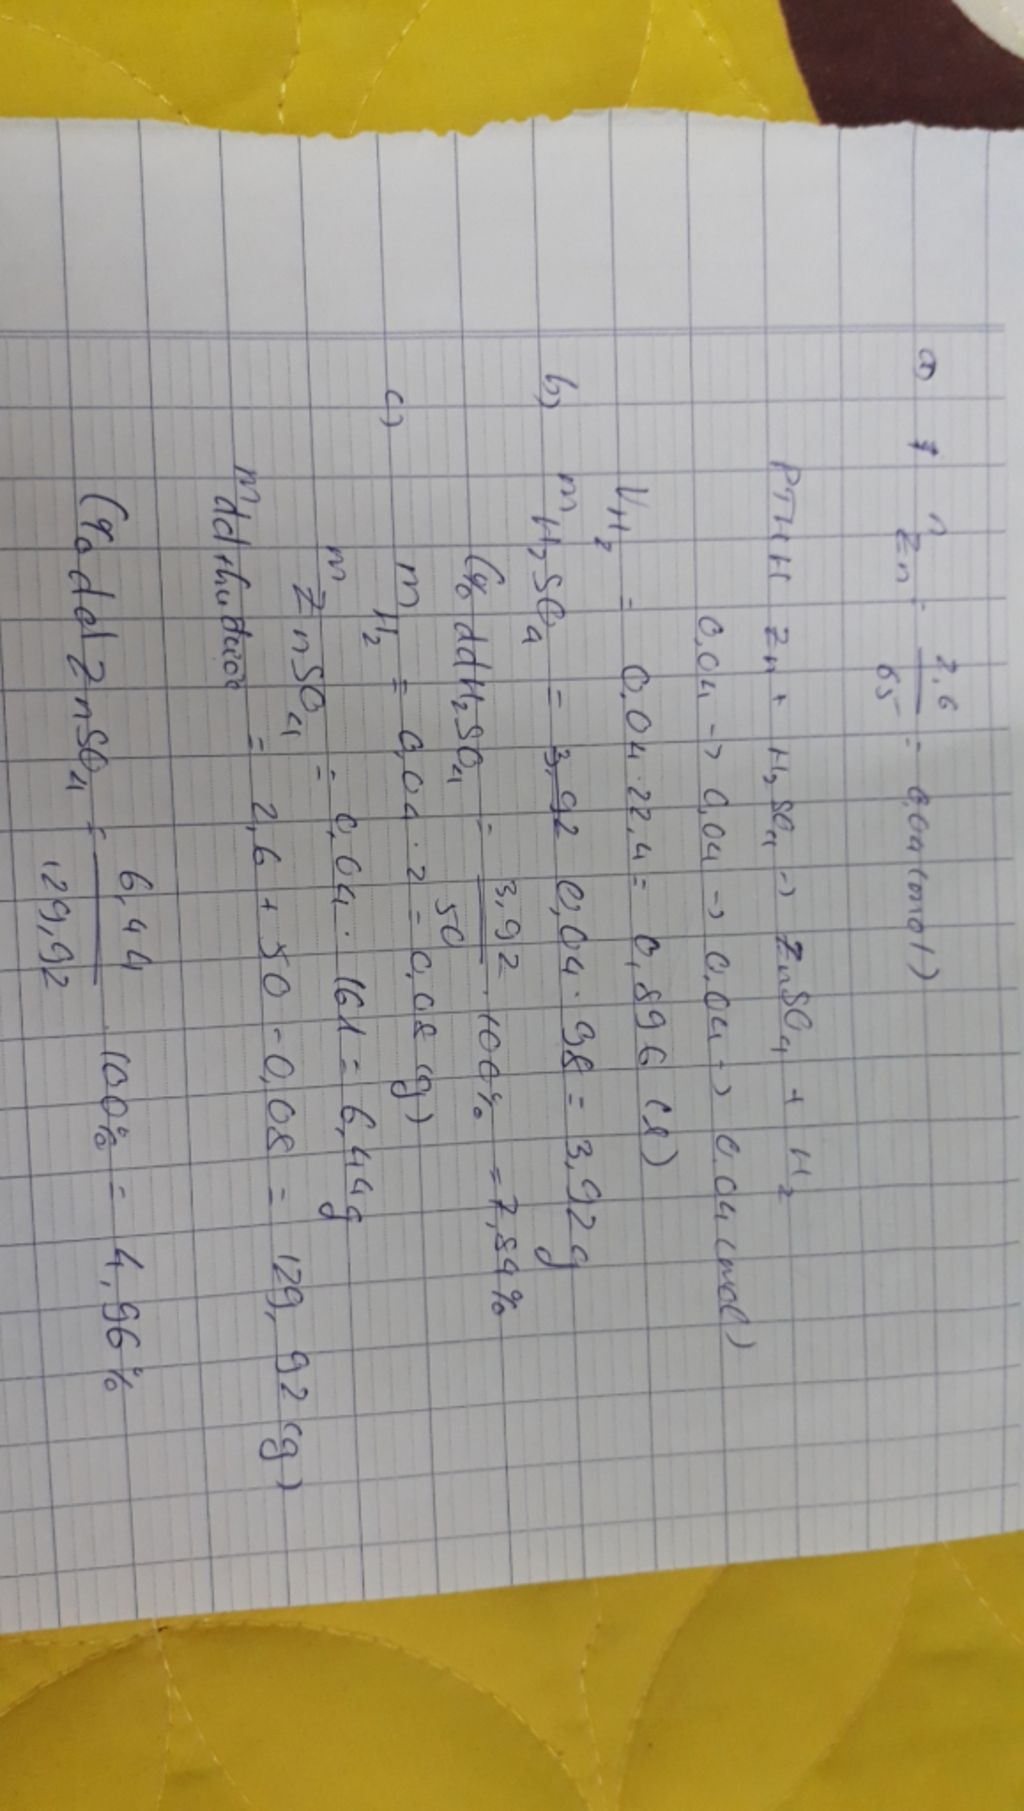 a) n Zn = 2,6 / 65 = 0,04 (mol)
PTHH Zn + H2SO4 -> ZnSO4 + H2
0,04 -> 0,04 -> 0,04 -> 0,04 (mol)
VH2 = 0,04 . 22,4 = 0,896 (l)
b) m H2SO4 = 3,92 0,04 . 98 = 3,92 g
C% dd H2SO4 = 3,92 / 50 . 100% = 7,84%
c) m H2 = 0,04 . 2 = 0,08 (g)
m ZnSO4 = 0,04 . 161 = 6,44 g
m dd thu được = 2,6 + 50 - 0,08 = 129,92 (g)
C% dd ZnSO4 = 6,44 / 129,92 . 100% = 4,96%